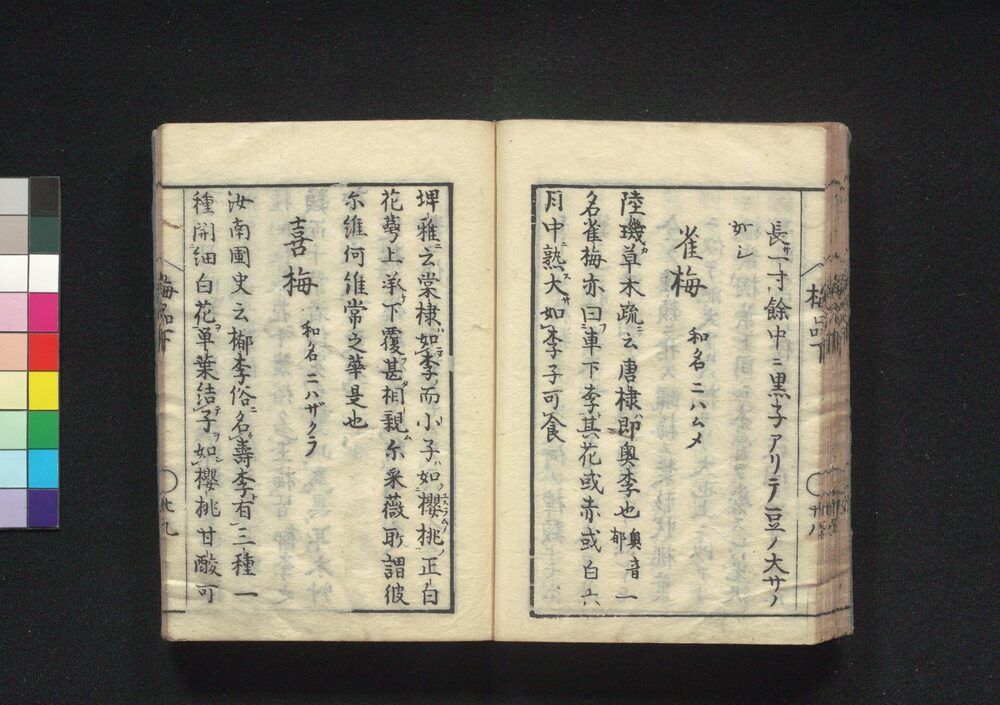 長サ一寸餘中ニ黒子アリテ豆ノ大サノ
如シ
雀梅 和名ニハムメ
陸璣草木疏ニ云唐棣ハ即奥李也 奥ノ音郁 一ニ
名雀梅亦曰車下李其花或赤或白六
月中熟大サ如李子可食
梅品下
廿八
埤雅ニ云棠棣ハ如李ノ而小子如櫻桃ノ正白
花萼上承下覆甚相親ム尓采薇所謂彼
尓維何維常之華是也
喜梅 和名ニハザクラ
汝南圃史ニ云郁李俗ニ名壽李有三種一
種開細白花ヲ單葉結子ヲ如櫻桃甘酸可
梅品下
廿九